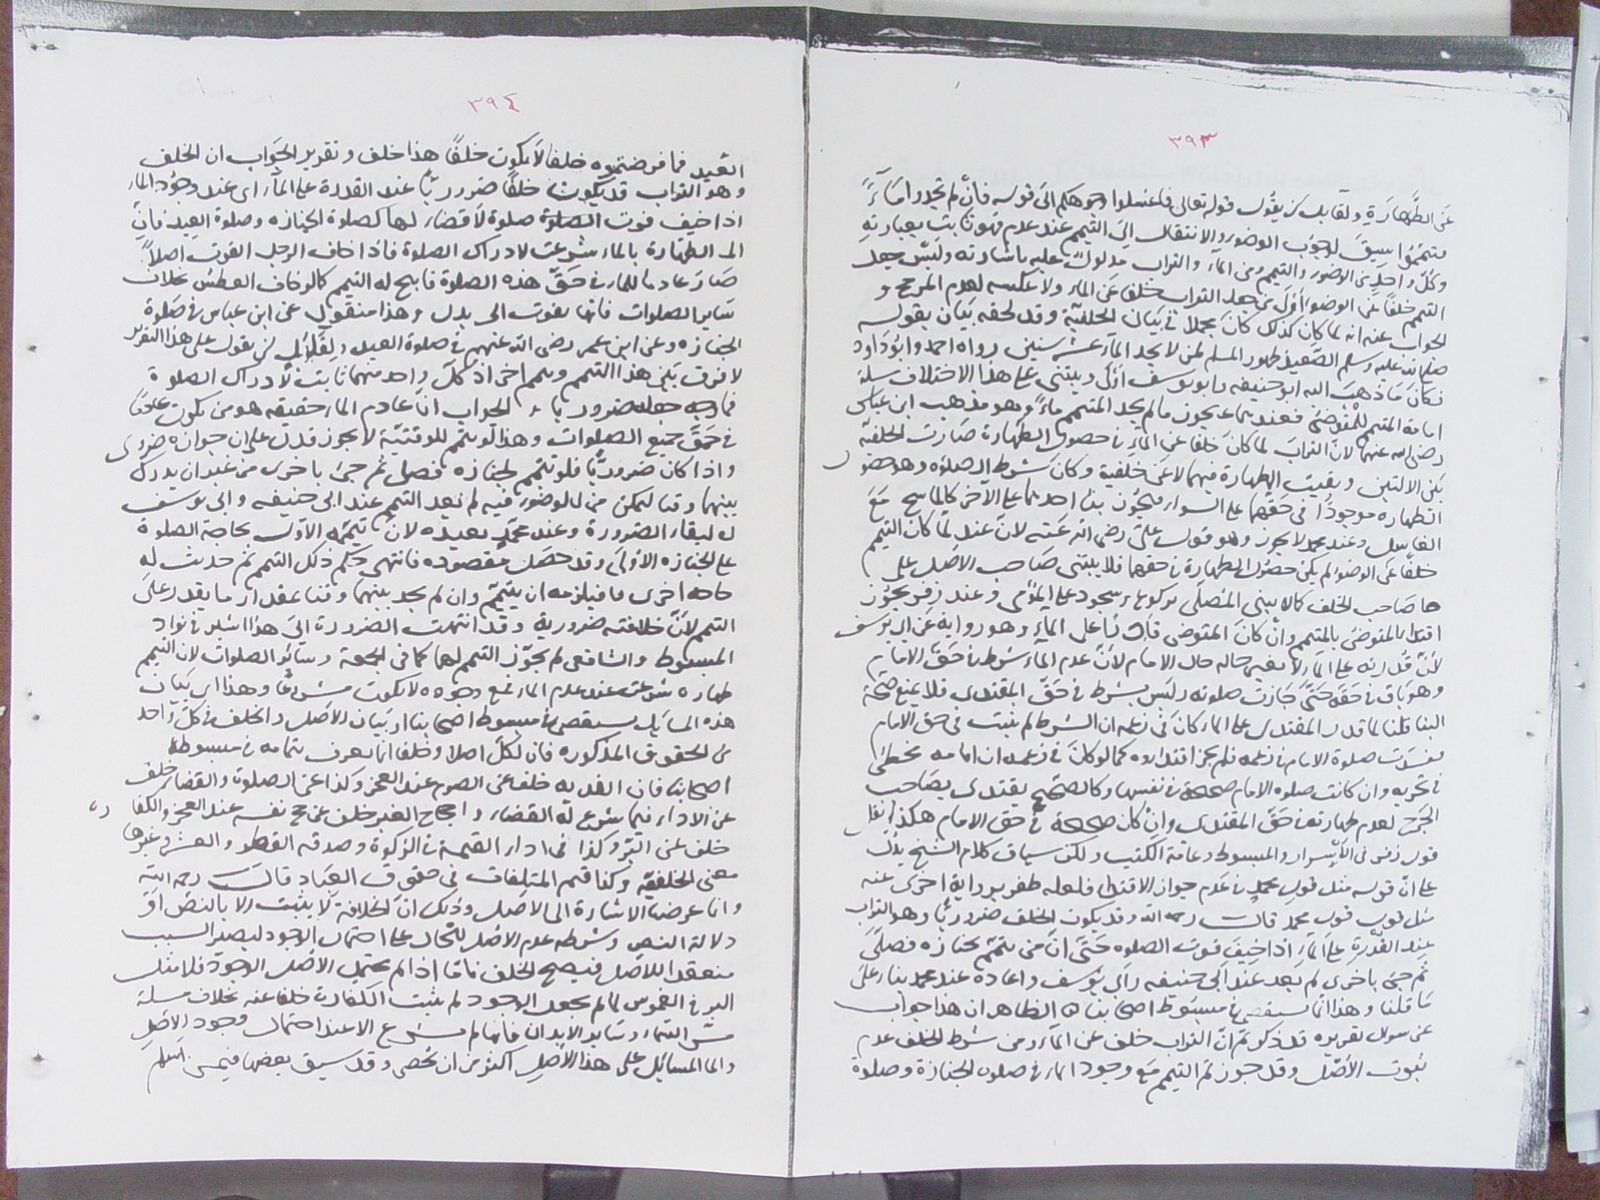 ٣٩٣
عن الطهارة ولقائل ان يقول قوله تعالى فاغسلوا وجوهكم الى قوله فان لم تجدوا ماء
فتيمموا سيق لوجوب الوضوء والانتقال الى التيمم عند عدمه فهو ثابت بعبارته
وكل واحد من الوضوء والتيمم ومن الماء والتراب مدلول عليه باشارته وليس جعل
التيمم خلفا عن الوضوء اولى من جعل التراب خلفا عن الماء ولا عكسه لعدم المرجح و
الجواب عنه انه لما كان كذلك كان مجملا في بيان الخلفية وقد لحقه بيان بقوله
صلى الله عليه وسلم الصعيد طهور المسلم لمن لا يجد الماء عشر سنين رواه احمد وابو داود
فكان ما ذهب اليه ابو حنيفه وابو يوسف اولى ويبتنى على هذا الاختلاف مسلة
امامة المتيمم للمتوضئ فعندهما يجوز ما لم يجد المتيمم ماء وهو مذهب ابن عباس
رضى الله عنهما لان التراب لما كان خلفا عن الماء في حصول الطهارة صارت الخلفية
بين الالتين وبقيت الطهارة فيهما لا عن خلفية وكان شرط الصلوة وهو حصول
الطهارة موجودا في حقهما على السواء فيجوز بناء احدهما على الاخر كالماسح مع
الغاسل وعند محمد لا يجوز وهو قول على رضى الله عنه لان عنده لما كان التيمم
خلفا عن الوضوء لم يكن حصول الطهارة في حقها فلا يبتنى صاحب الاصل على
صاحب الخلف كما لا يبنى المصلى بركوع وسجود على المؤمى وعند زفر يجوز
اقتداء المتوضئ بالمتيمم وان كان المتوضى قادرا على الماء وهو رواية عن ابى يوسف
لان قدرته على الماء لا تغير حاله حال الامام لان عدم الماء شرط في حق الامام
وهو باق في حقه حتى جازت صلوته وليس بشرط في حق المقتدى فلا يمنع صحة
البناء قلنا لما قدر المقتدى على الماء كان في زعمه ان الشرط لم يثبت في حق الامام
ففسدت صلوة الامام في زعمه فلم يجز اقتداؤه كما لو كان في زعمه ان امامه مخطئ
في تحريه وان كانت صلوة الامام صحيحة في نفسها وكالصحيح يقتدى بصاحب
الجرح لعدم طهارته في حق المقتدى وان كان صحيحة في حق الامام هكذا نقل
قول زفر في الاسرار والمبسوط وعامة الكتب ولكن سياق كلام الشيخ يدل
على ان قوله مثل قول محمد في عدم جواز الاقتداء فلعله ظفر برواية اخرى عنه
مثل قول محمد قال رحمه الله وقد يكون الخلف ضروريا وهو التراب
عند القدرة على الماء اذا خيف فوت الصلوه حتى ان من تيمم لجنازه فصلى
ثم جئ باخرى لم يعد عند ابى حنيفه وابى يوسف واعادة عند محمد بناء على
ما قلنا وهذا انما يستقصى في مبسوط اصحابنا الظاهر ان هذا جواب
عن سوال تقريره قد ذكرتم ان التراب خلف عن الماء ومن شرط الخلف عدم
ثبوت الاصل وقد جوزتم التيمم مع وجود الماء في صلوة الجنازة وصلوة
٣٩٤
العيد فما فرضتموه خلفا لا يكون خلفا هذا خلف وتقرير الجواب ان الخلف
وهو التراب قد يكون خلفا ضروريا عند القدرة على الماء اى عند وجود الماء
اذا خيف فوت الصلوة صلوة لا قضاء لها كصلوة الجنازه وصلوة العيد فان
الطهارة بالماء شرعت لادراك الصلوة فاذا خاف الرجل الفوت اصلا
صار عادما للماء في حق هذه الصلوة فابيح له التيمم كما لو خاف العطش بخلاف
سائر الصلوات فانها تفوت الى بدل وهذا منقول عن ابن عباس في صلوة
الجنازه وعن ابن عمر رضى الله عنهم في صلوة العيد ولقائل ان يقول على هذا التقرير
لا فرق بين هذا التيمم وتيمم اخر اذ كل واحد منهما ثابت لادراك الصلوة
فما وجه جعله ضروريا والجواب ان عادم الماء حقيقه هو من يكون عادما
في حق جميع الصلوات وهذا لو تيمم للوقتية لا يجوز فدل على ان جوازه ضرورى
واذا كان ضروريا فلو تيمم لجنازه فصلى ثم جئ باخرى من غير ان يدرك
بينهما وقتا يتمكن من الوضوء فيه لم يعد التيمم عند ابى حنيفه وابى يوسف
لبقاء الضرورة وعند محمد يعيده لان تيممه الاول لحاجة الصلوة
على الجنازه الاولى وقد حصل مقصوده فانتهى حكم ذلك التيمم ثم حدثت له
حاجه اخرى فيلزمه ان يتيمم وان لم يجد بينهما وقتا بمقدار ما يقدر على
التيمم لان خلافته ضرورية وقد انتهت الضرورة الى هذا اشار في نوادر
المبسوط والشافعى لم يجوز التيمم لهما كما في الجمعة وسائر الصلوات لان التيمم
طهارة شرعت عند عدم الماء فمع وجوده لا يكون مشروعا وهذا اى بيان
هذه المسايل يستقصى في مبسوط اصحابنا وبيان الاصل والخلف في كل واحد
من الحقوق المذكوره فان لكل اصلا وخلفا انما يعرف بتمامه في مبسوط
اصحابنا فان الفدية خلف عن الصوم عند العجز وكذا عن الصلوة والقضاء خلف
عن الاداء فيما شرع له القضاء واحجاج الغير خلف عن حج نفسه عند العجز والكفارة
خلف عن البر وكذا في اداء القيمة في الزكوة وصدقه الفطر والعشر وغيرها
معنى الخلفية وكذا قيم المتلفات في حقوق العباد قال رحمه الله
وانما عرضنا الاشارة الى الاصل وذلك ان الخلافة لا يثبت الا بالنص او
دلالة النص وشرطه عدم الاصل للحال على احتمال الوجود ليصير السبب
منعقدا للاصل فيصح الخلف فاما اذا لم يحتمل الاصل الوجود فلا مثل
البر في الغموس لما لم يحتمل الوجود لم يثبت الكفارة خلفا عنه بخلاف مسلة
مس السماء وسائر الابدال فانها لم تشرع الا عند احتمال وجود الاصل
واما المسائل على هذا الاصل اكثر من ان تحصى وقد سبق بعضها فيمن اسلم